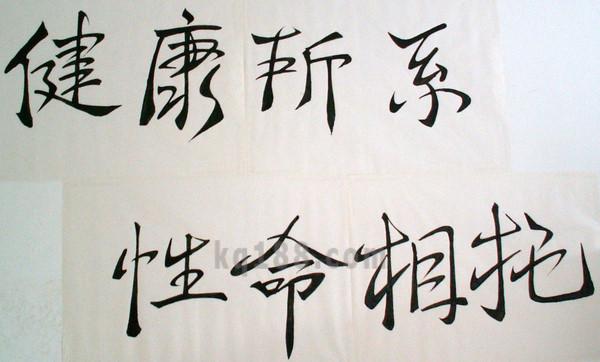 健康所系
性命相托
kq188.com